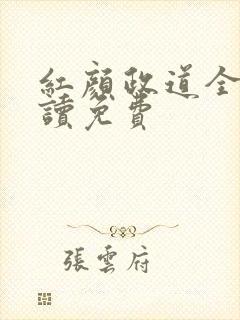 紅顏政道全
讀免費
張雲府